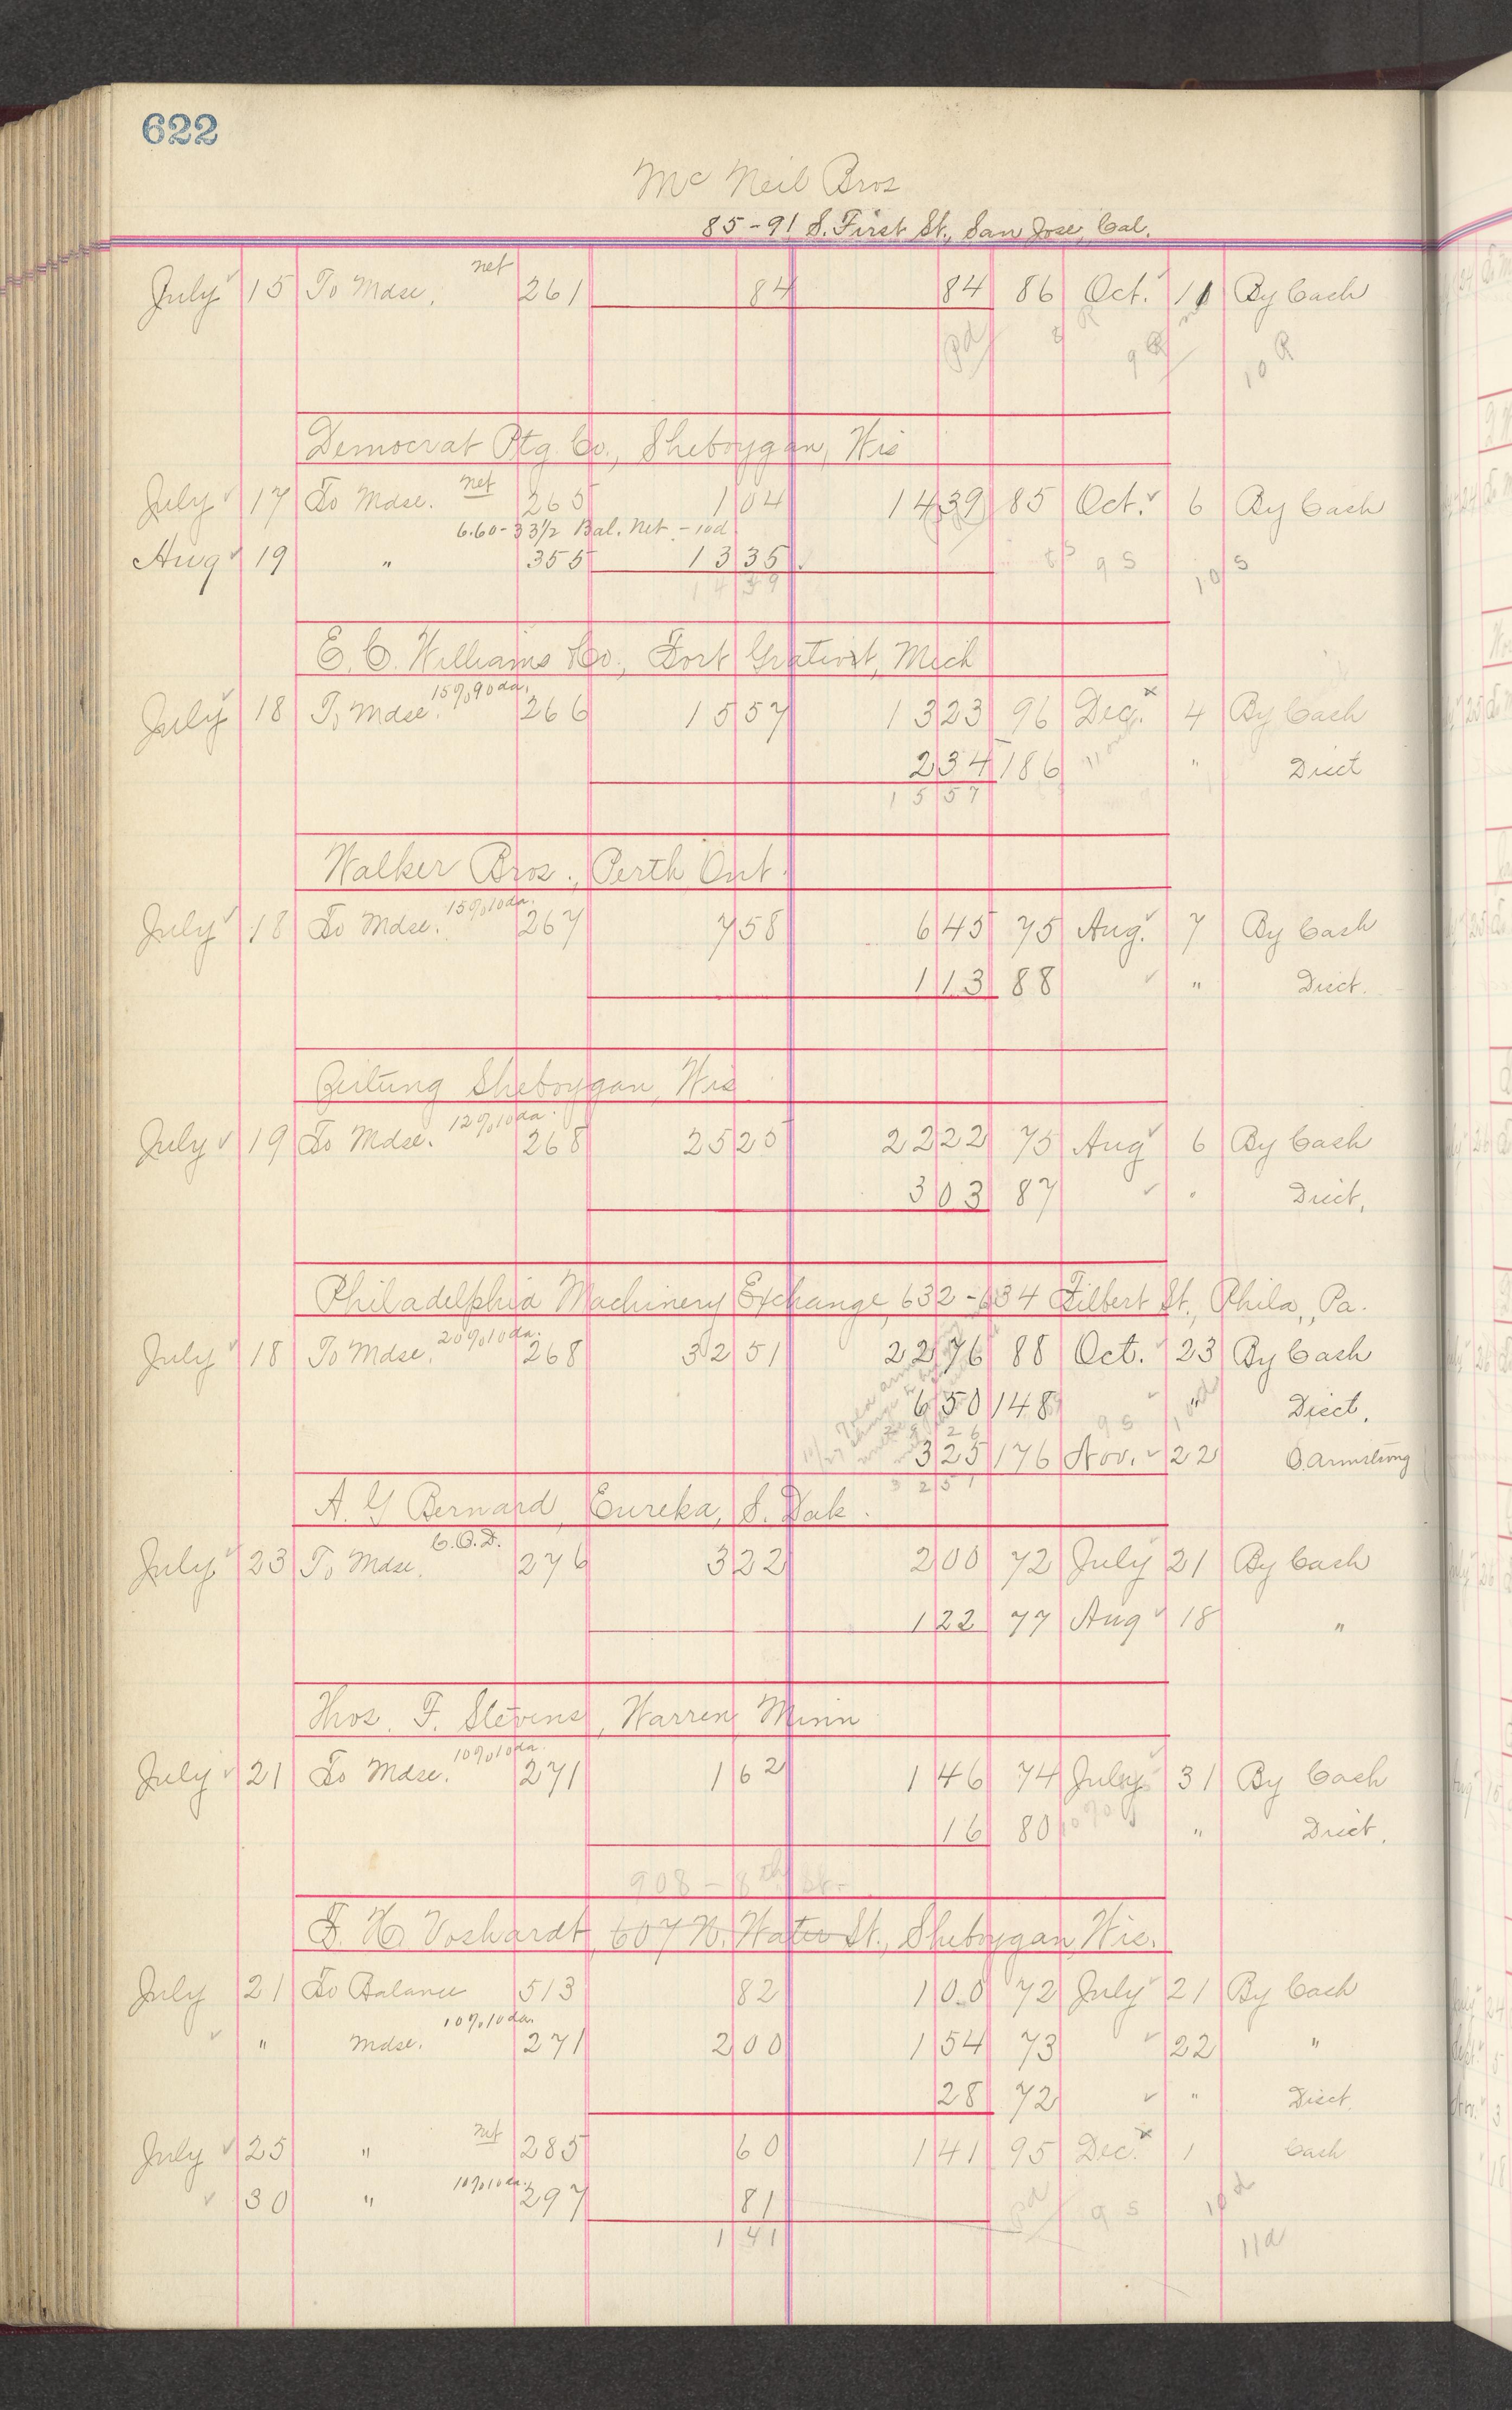 622
Mc Neil Bros
85-91 S. First St., San Jose, Cal.
July 15 To Mdse. net 261 84 84 86 Oct. 11 By Cash
Pd 8 R 9 R 10 R
Democrat Ptg. Co., Sheboygan, Wis
July 17 To Mdse. net 265 1 04 14 39 85 Oct. 6 By Cash
6.60-33 1/2 Bal. Net - 10d
Aug 19 " 355 13 35 9 S 10 S
14 39
E. C. Williams Co., Fort Gratiot, Mich
July 18 To Mdse. 15% 90 da. 266 15 57 13 23 96 Dec. 4 By Cash
2 34 186 " Disct
15 57
Walker Bros., Perth Ont.
July 18 To Mdse. 15% 10 da. 267 7 58 6 45 75 Aug. 7 By Cash
1 13 88 " Disct.
Zeitung Sheboygan, Wis
July 19 To Mdse. 12% 10 da. 268 25 25 22 22 75 Aug 6 By Cash
3 03 87 " Disct.
Philadelphia Machinery Exchange, 632-634 Filbert St., Phila., Pa.
July 18 To Mdse. 20% 10 da. 268 32 51 22 76 88 Oct. 23 By Cash
6 50 148 " Disct.
9 S
3 25 176 Nov. 22 O. Armstrong
32 51
A. G Bernard, Eureka, S. Dak.
July 23 To Mdse. C.O.D. 276 3 22 2 00 72 July 21 By Cash
1 22 77 Aug 18 "
Thos. F. Stevens, Warren, Minn
July 21 To Mdse. 10% 10 da. 271 1 62 1 46 74 July 31 By Cash
16 80 " Disct.
908 - 8th St.
F. H. Voshardt, 607 N. Water St., Sheboygan, Wis.
July 21 To Balance 513 82 1 00 72 July 21 By Cash
" Mdse. 10% 10 da. 271 2 00 1 54 73 22 "
28 72 " Disct.
July 25 " net 285 60 1 41 95 Dec. 1 Cash
30 " 10% 10 da. 297 81 Pd 9 S 10 d
1 41 11 d